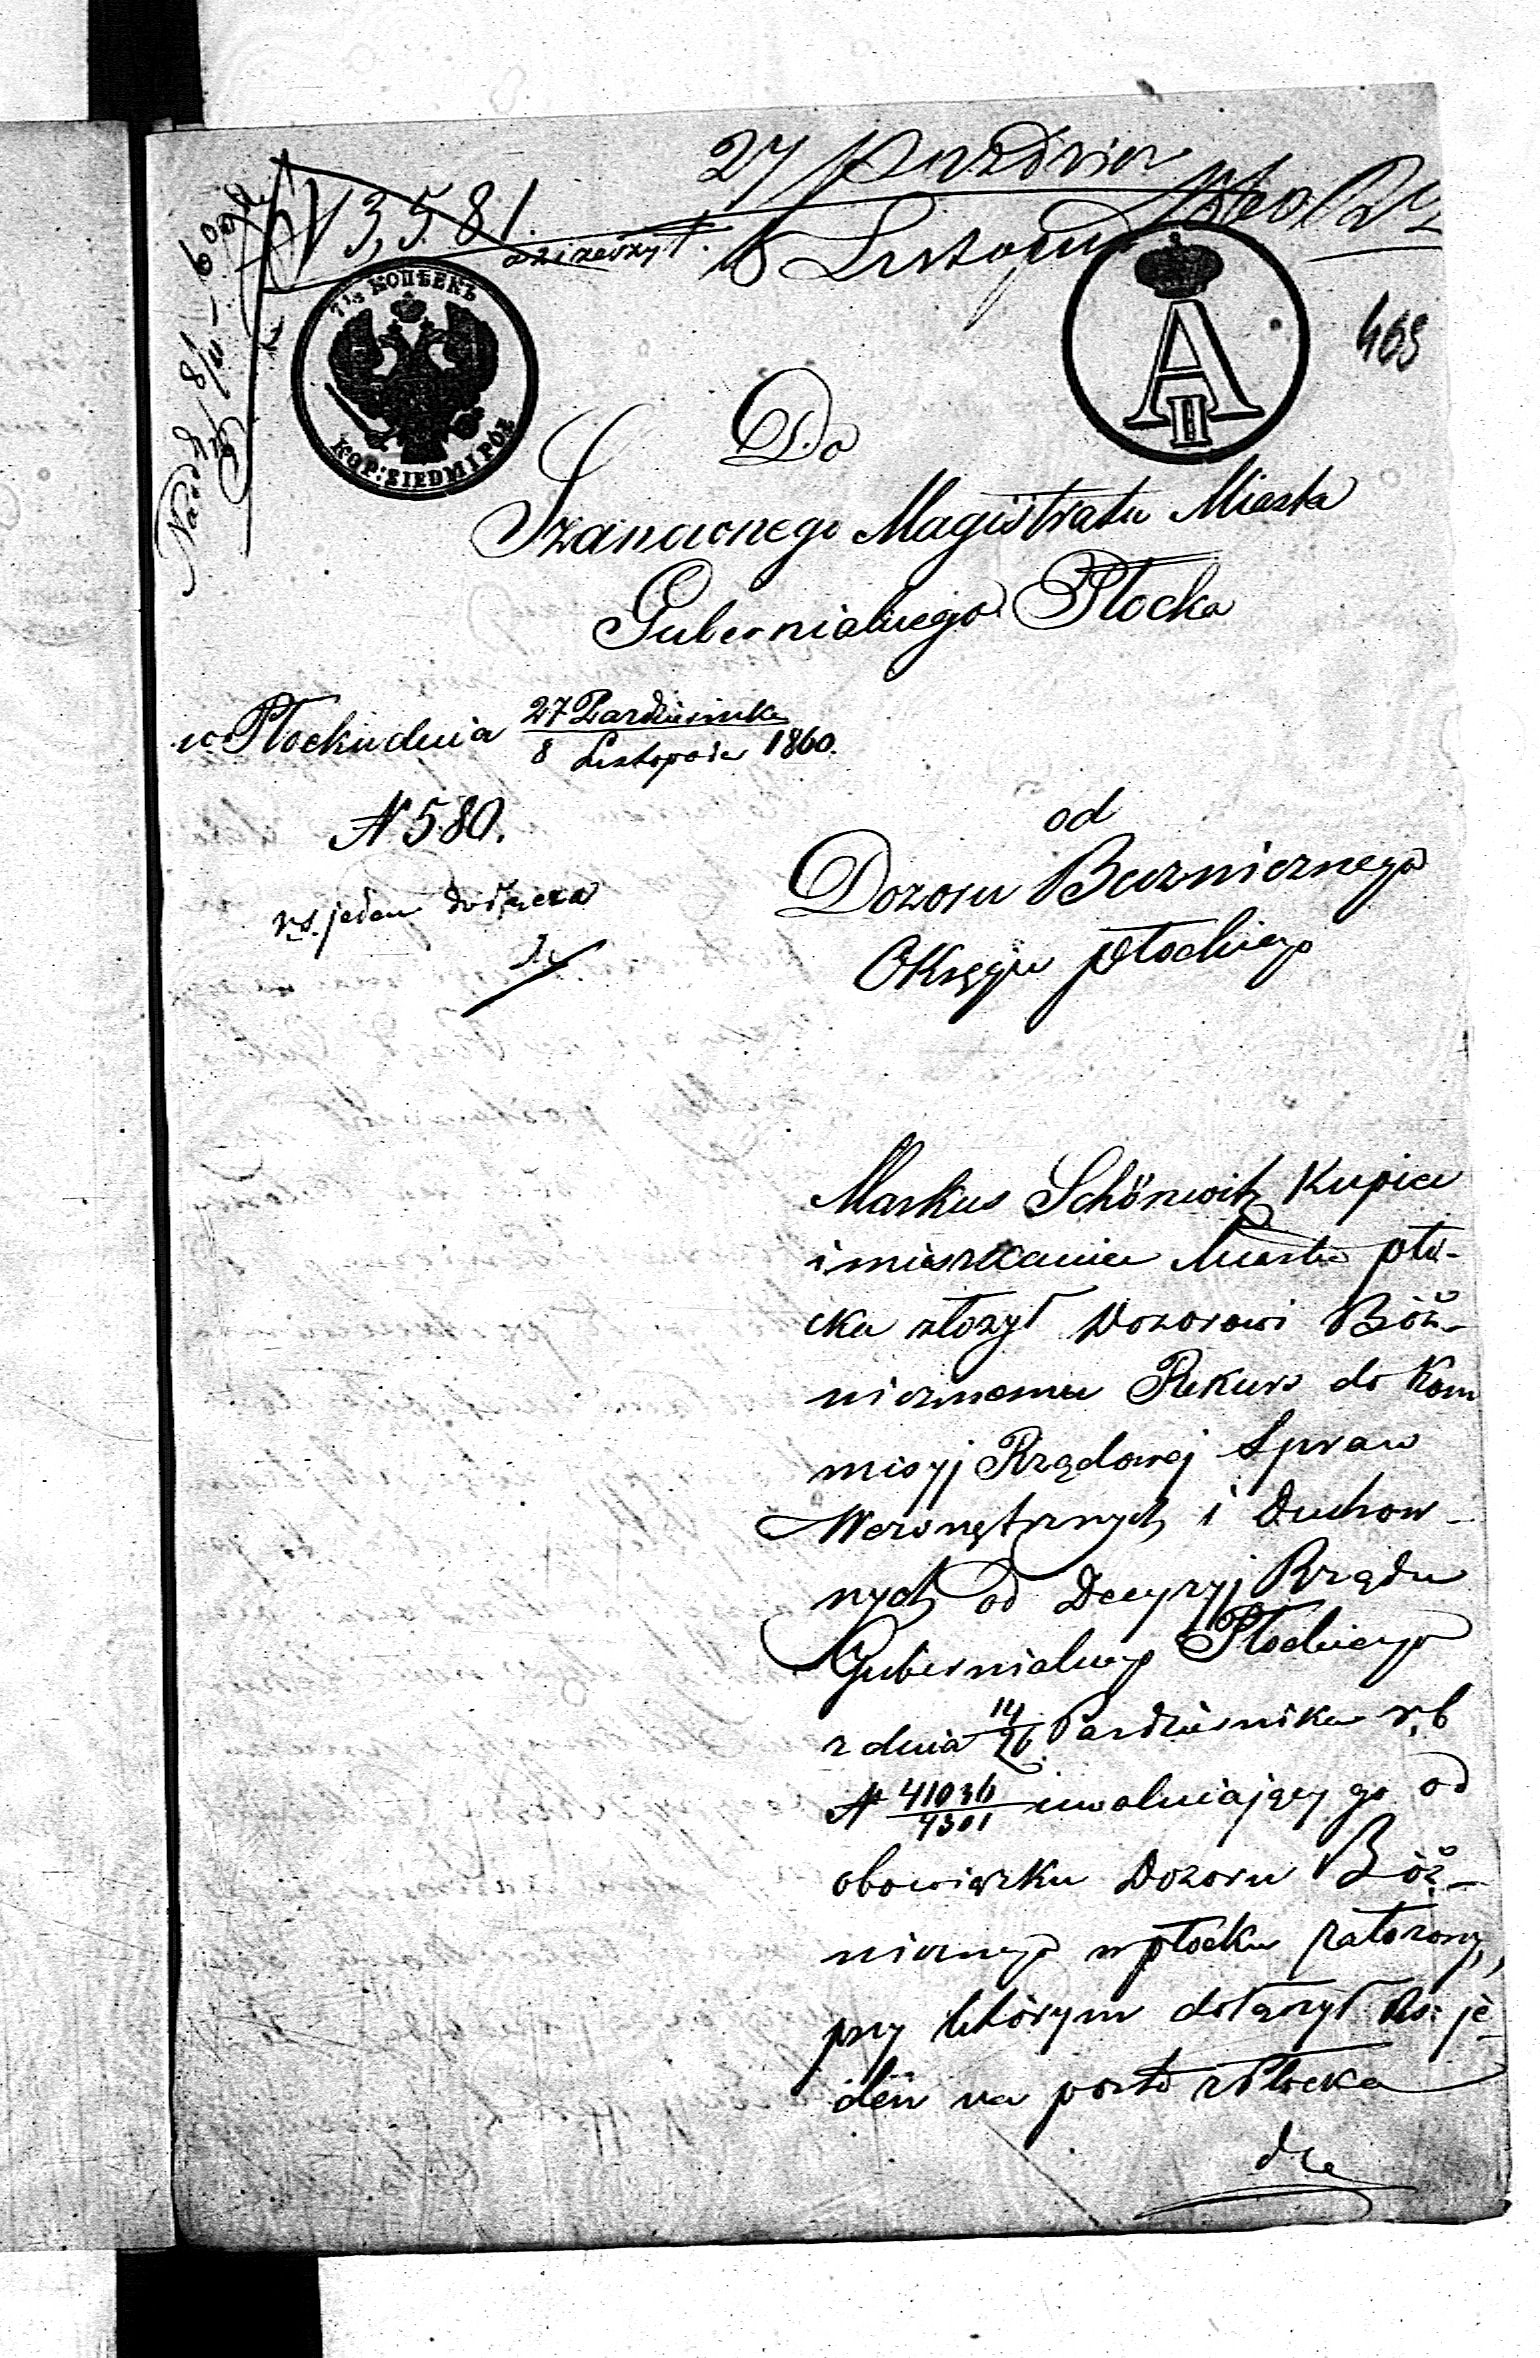 N 3,581.
27 Paździer
8 Listopad 1860
469
7½ КОПѢЕКЪ
KOP: SIEDM I PÓŁ
A II
Do
Szanownego Magistratu Miasta
Gubernialnego Płocka
w Płocku dnia 27 Października
8 Listopada 1860.
N 580.
rs. jeden dołącza
od
Dozoru Bużnicznego
Okręgu płockiego
Markus Schönwitz Kupiec
i mieszkaniec Miasta pło-
cka złożył Dozorowi Bóż-
nicznemu Rekurs do Kom
misyj Rządowej Spraw
Wewnętrznych i Duchow-
nych od Decyzyj Rządu
Gubernialnego Płockiego
z dnia 14/26 Października r. b
N 41036/4301 uwalniający go od
obowiązku Dozoru Bóż-
nicznego w płocku założony,
przy którym dołączył Rs: je-
den na porto z Płocka